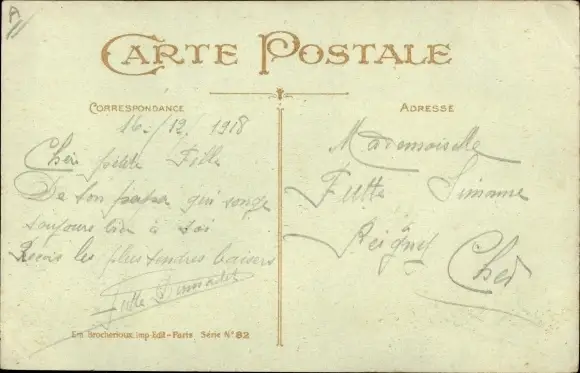 A
CARTE POSTALE
CORRESPONDANCE
ADRESSE
16-/12/1918
Cher petite Fille
De ton papa qui songe
toujours bien à toi
Recois les plus tendres baisers
Futte
Mademoiselle
Futte Simonne
Reigny
Cher
Em. Brocherioux, Imp-Edit-Paris Série No 82